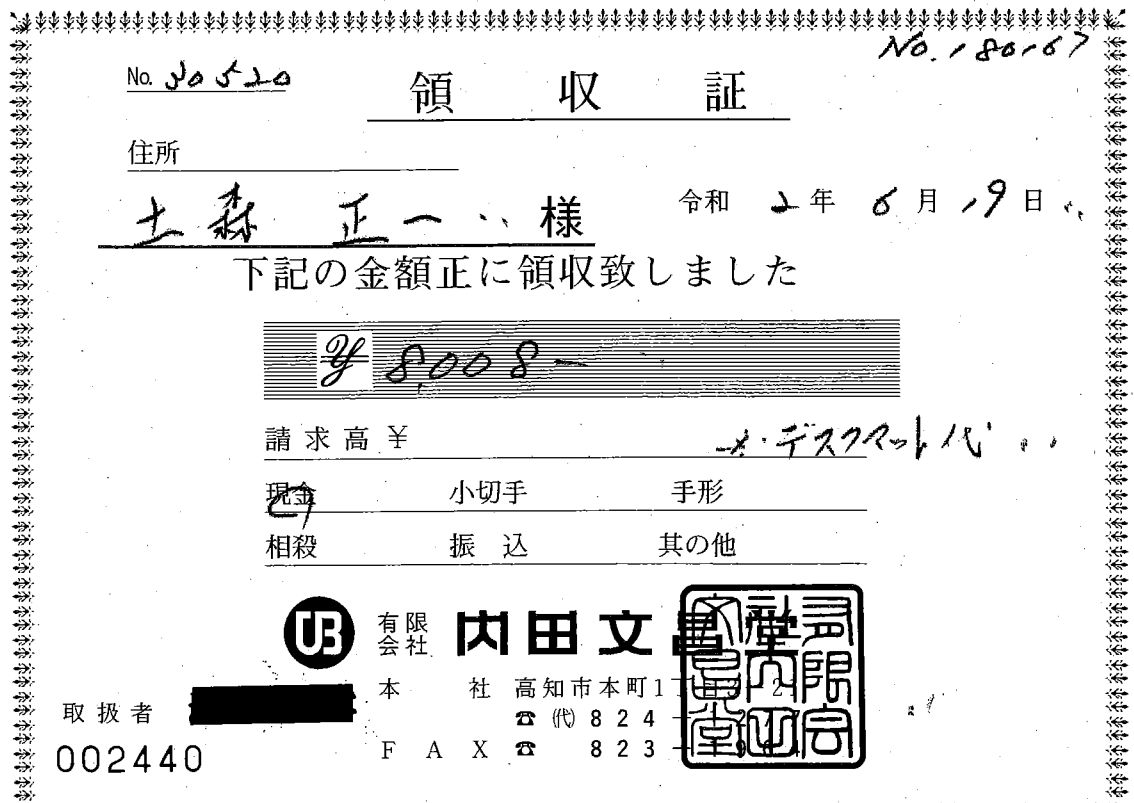 No. 180167
No. 30520
領収証
住所
土森 正一 様
令和 2年 6月 19日
下記の金額正に領収致しました
¥ 8,008-
請求高 ¥
デスクマット代
現金 小切手 手形
相殺 振込 其の他
UB 有限会社 内田文昌堂
有限会社内田文昌堂
本社 高知市本町1丁目
☎ (代) 824
FAX ☎ 823
取扱者
002440